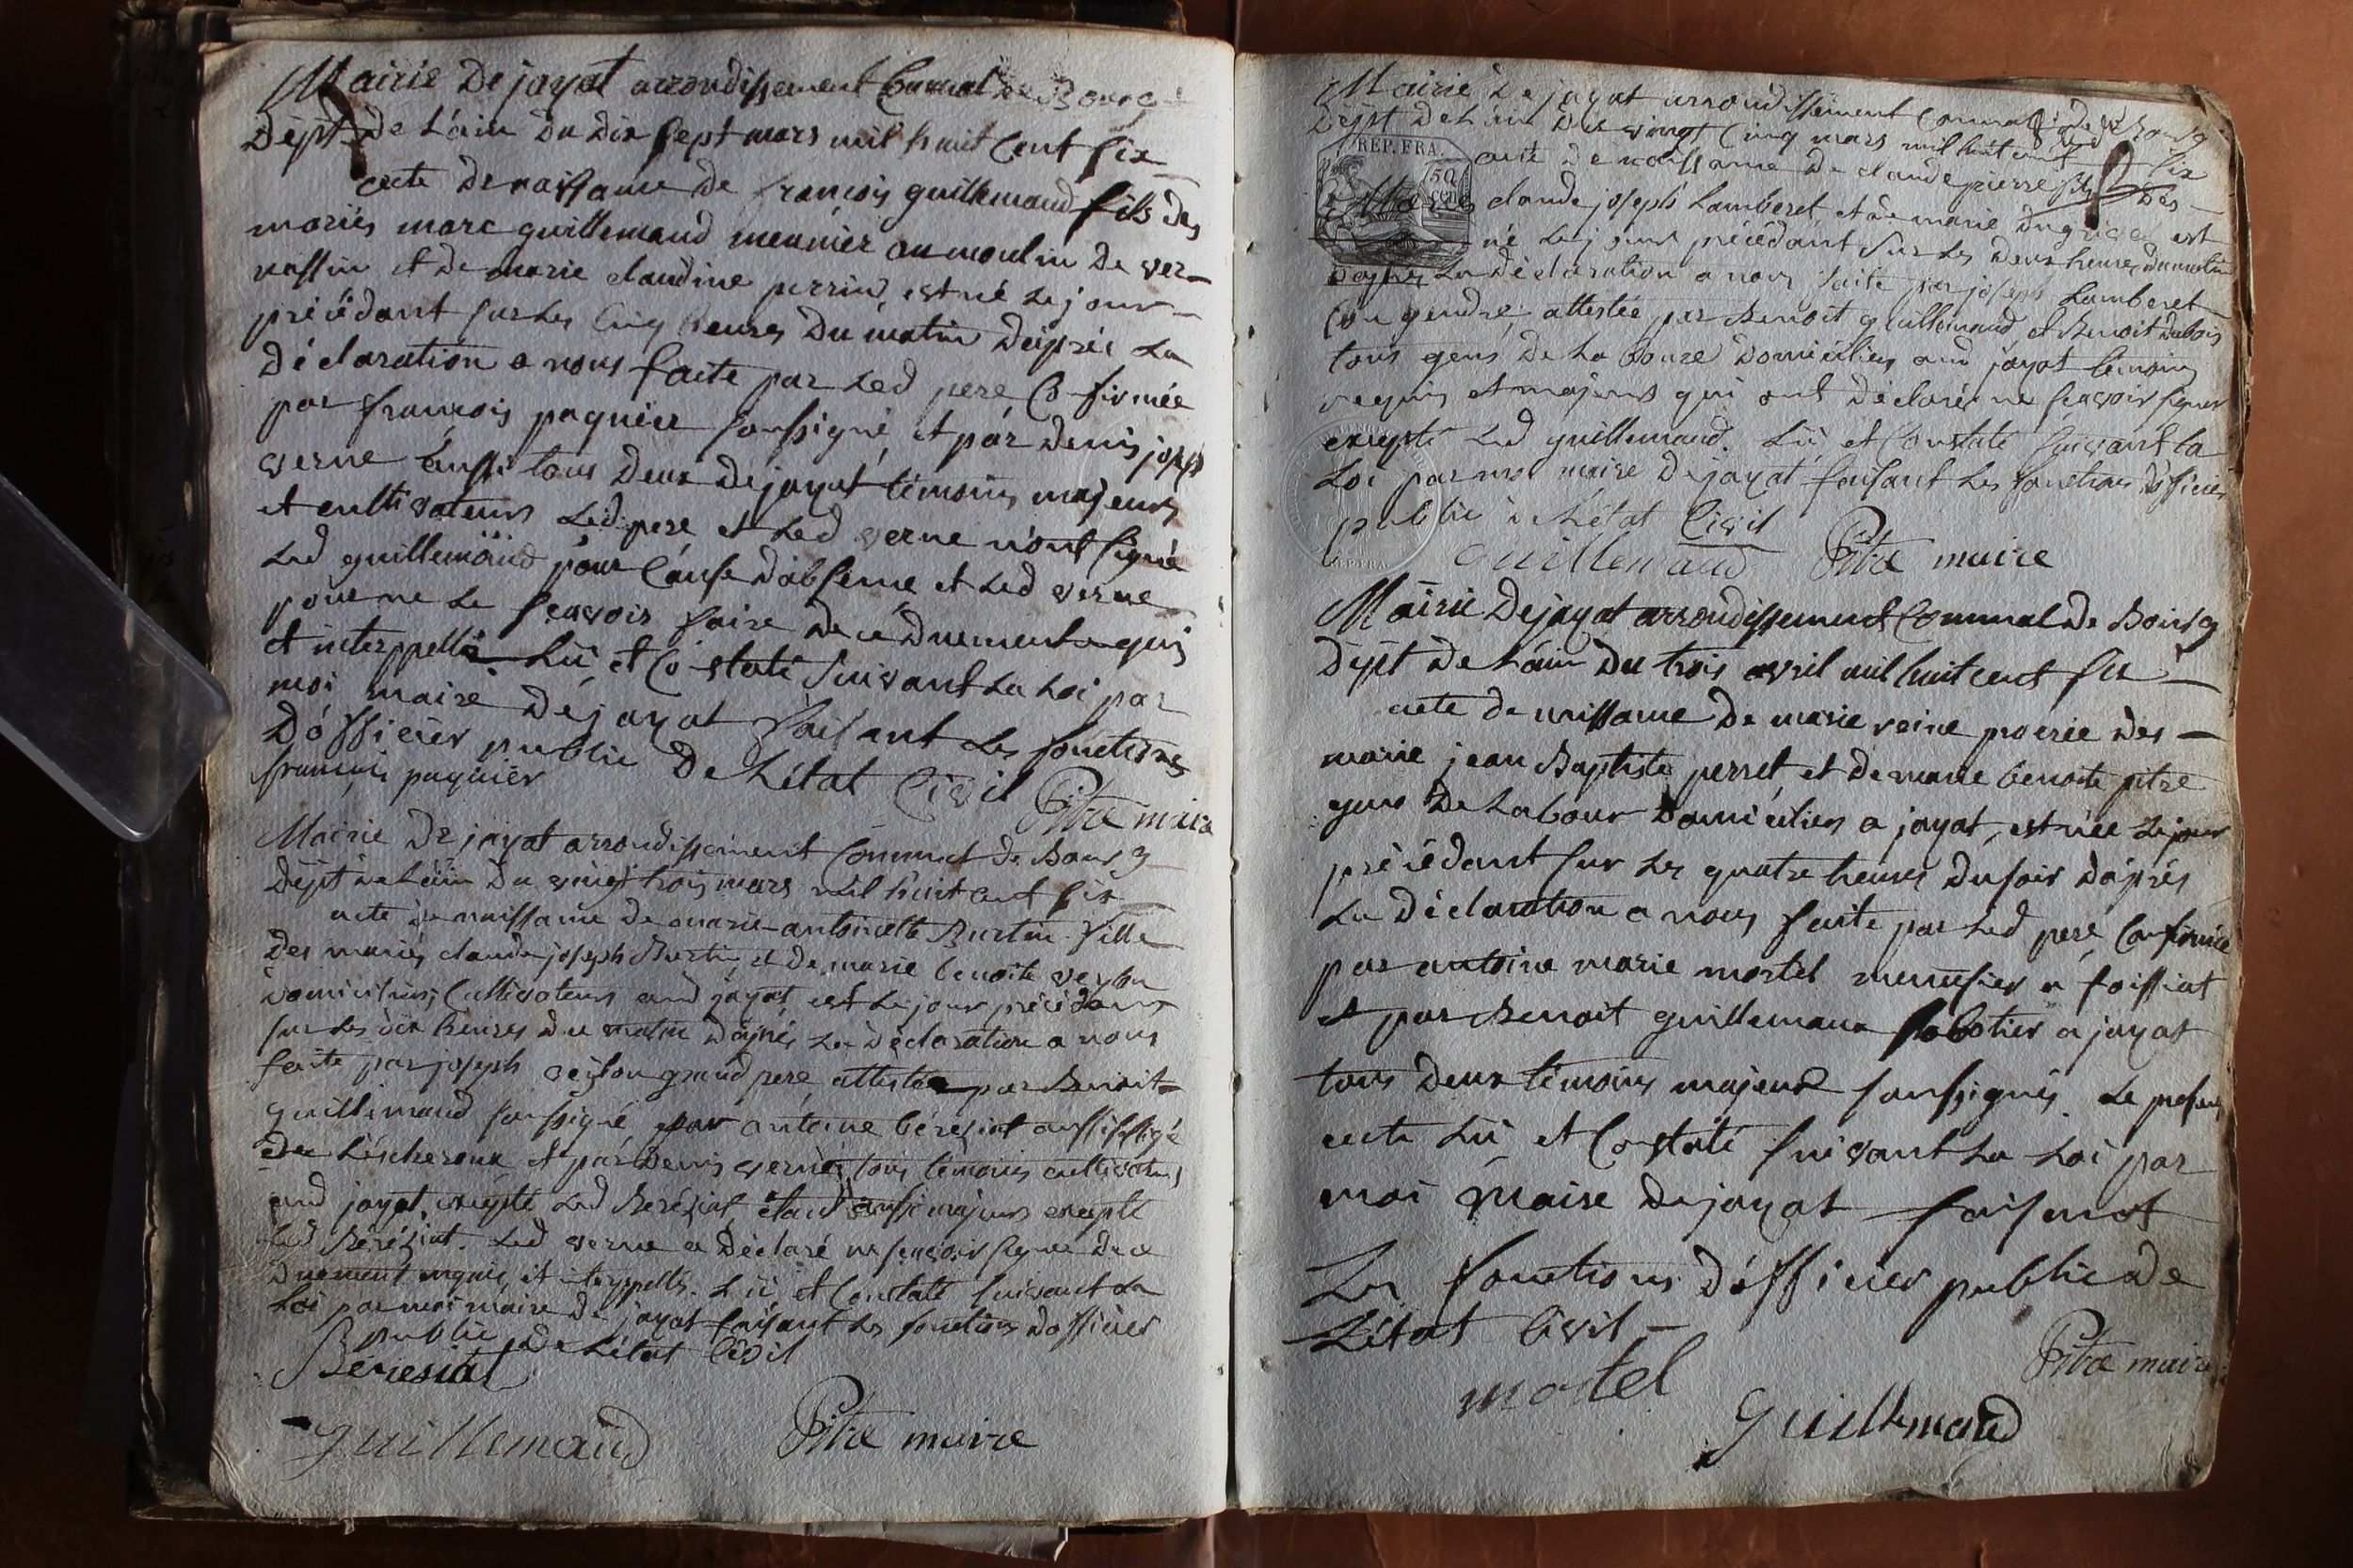 Mairie De jayat arrondissement Communal de Bourg
Dépt De L'ain Du Dix sept mars mil huit Cent six
acte De naissance de francois guillemaud fils des
mariés marc guillemaud meunier au moulin De ver-
nassin et De marie claudine perrin, est né Le jour
précédant sur Les Cinq heures Du matin D'après La
Déclaration a nous faite par Led pere Confirmée
par françois paquier soussigné, et par Denis joseph
verne aussi tous Deux De jayat témoins majeurs
et cultivateurs Led pere et Led verne n'ont signé
Led guillemaud pour Cause D'absence et Led verne
pour ne Le sçavoir faire De ce Duement requis
et interppellé Lû, et Constaté Suivant La Loi par
moi maire De jayat faisant Les fonctions
D'officier public De L'état Civil
françois paquier Pitre maire
Mairie De jayat arrondissement Communal de Bourg
Dépt De L'ain Du vingt trois mars mil huit cent six
acte De naissance De marie-antoinette Burtin fille
Des mariés claude joseph Burtin, et De marie benoite veylon
Domiciliés, Cultivateurs aud jayat, est Le jour précédant
sur Les dix heures Du matin D'après La Déclaration a nous
faite par joseph veylon grand pere, attestée par Benoit
guillemaud soussigné par antoine béréziat aussi sigé
De L'éscheroux et par Denis verne, tous témoins cultivateurs
aud jayat, excepté Led Béréziat, étant aussi majeurs excepté
Led Béréziat. Led verne a Déclaré ne sçavoir signer De ce
Duement requis, et interppellé. Lû, et Constaté suivant La
Loi par moi maire De jayat faisant Les fonctions D'officier
public De L'état Civil
Béreziat
guillemaud Pitre maire
Mairie De jayat arrondissement Communal de Bourg
Dépt De L'ain Du vingt Cinq mars mil huit cent six
REP. FRA.
50
cen
acte De naissance De claude pierre fils Des
Mariés claude joseph Lamberet, et De marie est
né Le jour précédant sur Les Deux heures Du matin
D'après La Déclaration a nous faite par joseph Lamberet
son gendre, attestée par Benoit guillemaud, et Benoit Dubois
tous gens De La boure Domiciliés aud jayat témoins
requis et majeurs qui ont Déclaré ne sçavoir signer
excepté Led guillemaud. Lû, et Constaté suivant La
Loi par moi maire De jayat faisant Les fonctions D'officier
public De L'état Civil
guillemaud Pitre maire
Mairie De jayat arrondissement Communal De Bourg
Dépt De L'ain Du trois avril mil huit cent six
acte De naissance De marie reine procrée Des
marié jean Baptiste perret, et De marie benoite pitre
gens De Labour Domiciliés a jayat, est née Le jour
précédant sur Les quatre heures Du soir D'après
La Déclaration a nous faite par Led pere, Confirmée
par antoine marie mortel menusier a foissiat
et par Benoit guillemaud sabotier a jayat
tous Deux témoins majeurs soussignés. Le présent
acte Lû, et Constaté suivant La Loi par
moi Maire De jayat faisant
Les fonctions D'officier public De
L'état Civil
Pitre maire
mortel
guillemaud